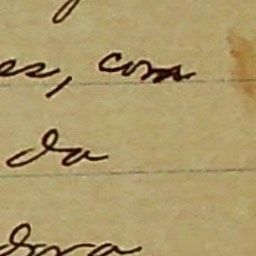 es, com
do
dora